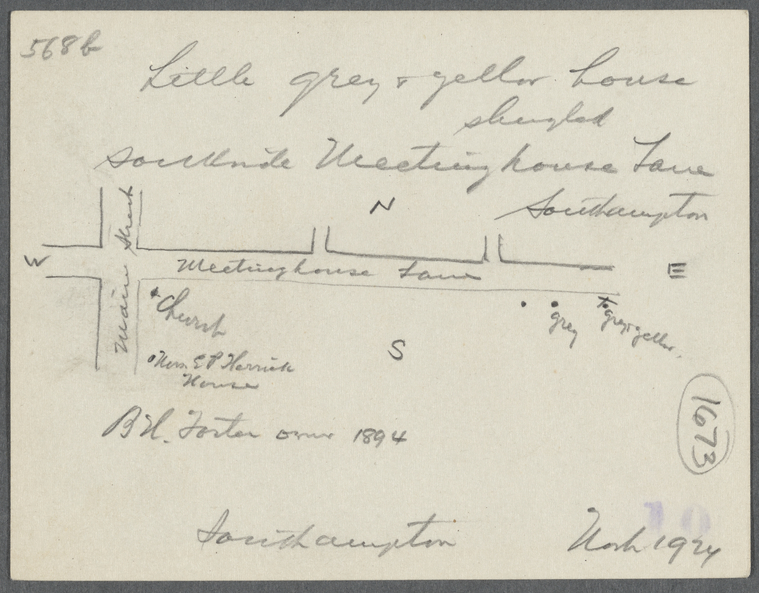 568b
Little grey & yellow house
shingled
southside Meetinghouse Lane
Southampton
N
Main Street
W
Meetinghouse Lane
E
Church
grey
grey & yellow.
S
E P Herrick
House
B H. Foster owner 1894
1673
10
Southampton
1924